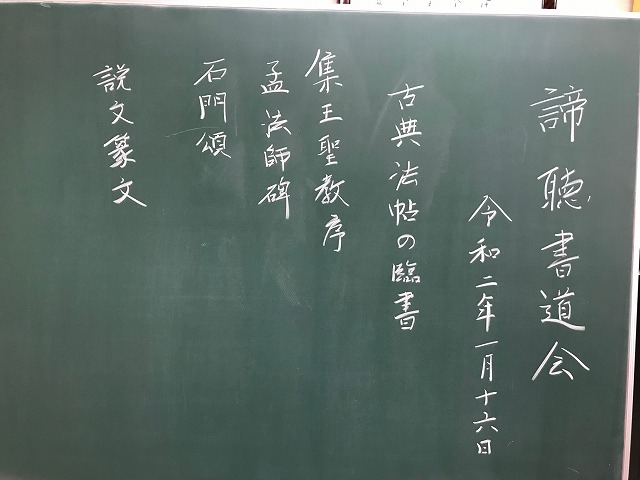 諦聴書道会
令和二年一月十六日
古典法帖の臨書
集王聖教序
孟法師碑
石門頌
説文篆文